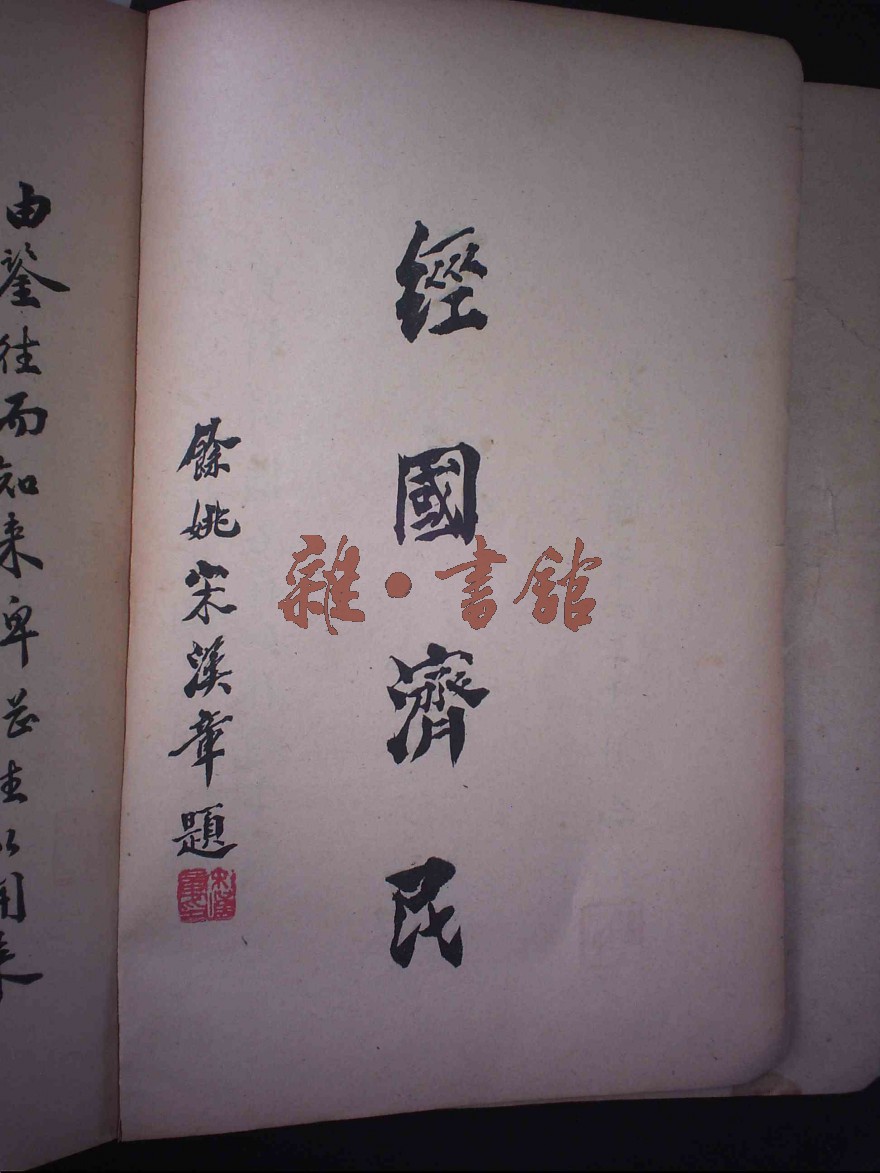 經國濟民
餘姚宋漢章題
雜·書館
由鑒往而知來卑